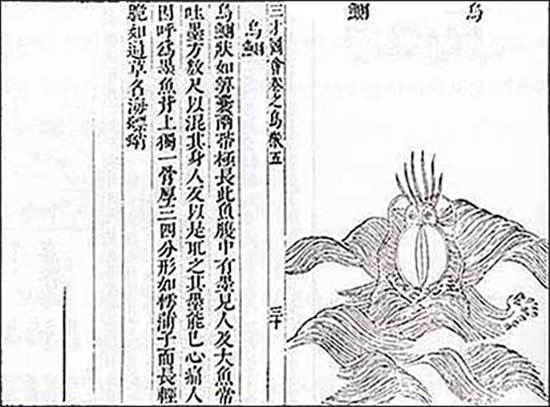 烏鰂
三才圖會卷之鳥獸五 三十
烏鰂
烏鰂狀如筭囊兩帶極長此魚腹中有墨見人及大魚常
吐墨方數尺以混其身人反以是取之其墨能已心痛人
因呼爲墨魚背上獨一骨厚三四分形如樗蒲子而長輕
脆如通草名海螵蛸